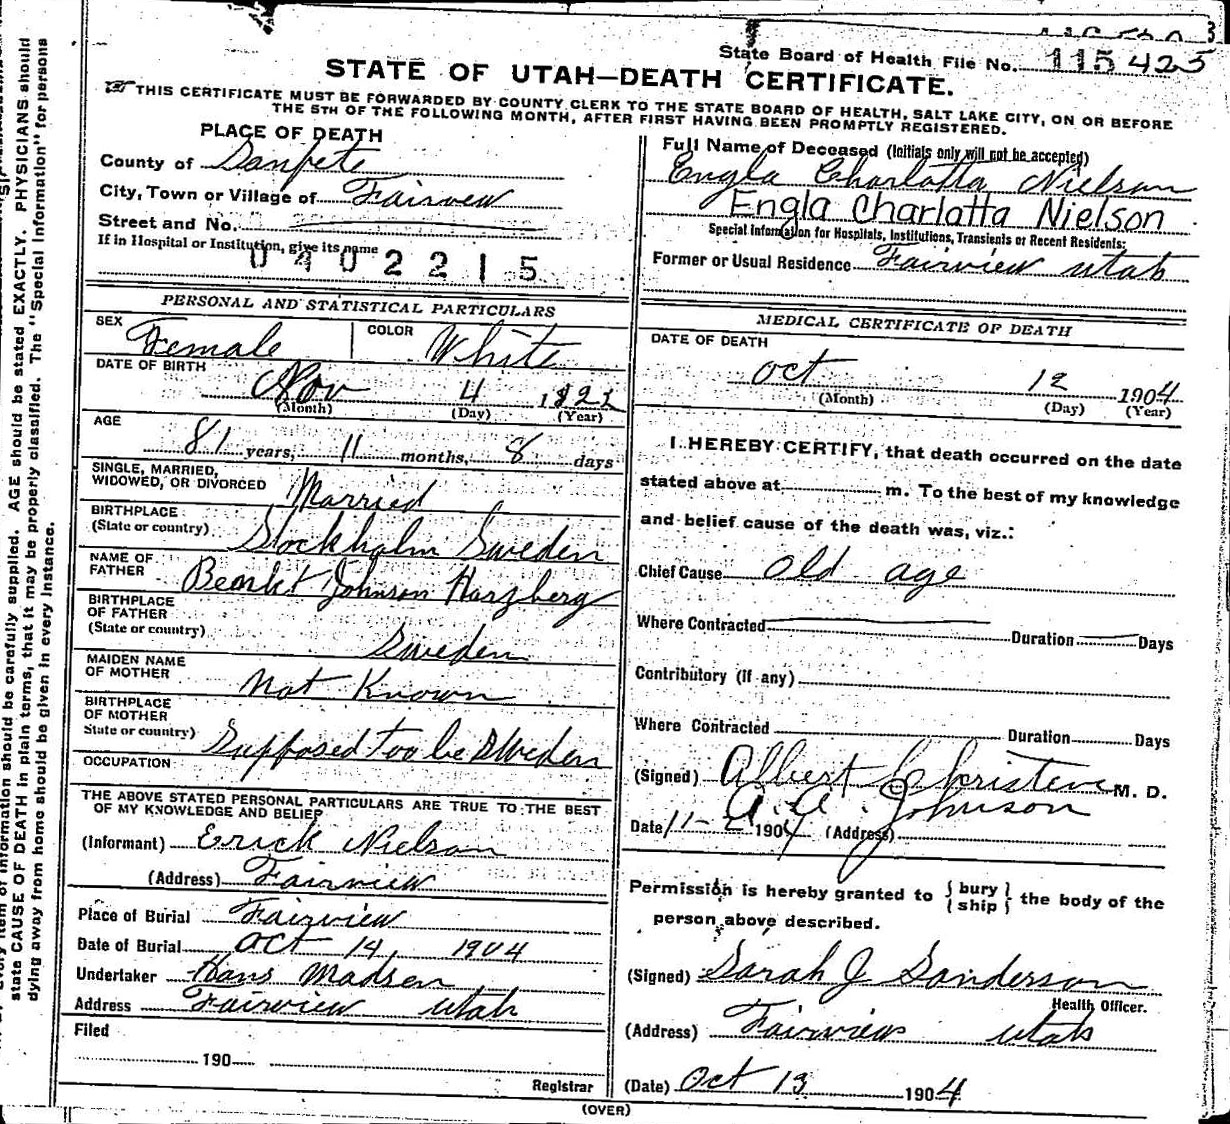 State Board of Health File No. 115425
STATE OF UTAH—DEATH CERTIFICATE.
THIS CERTIFICATE MUST BE FORWARDED BY COUNTY CLERK TO THE STATE BOARD OF HEALTH, SALT LAKE CITY, ON OR BEFORE
THE 5TH OF THE FOLLOWING MONTH, AFTER FIRST HAVING BEEN PROMPTLY REGISTERED.
PLACE OF DEATH
County of Sanpete
City, Town or Village of Fairview
Street and No.
If in Hospital or Institution, give its name
0402215
Full Name of Deceased (Initials only will not be accepted)
Engla Charlotta Nielson
Engla Charlatta Nielson
Special Information for Hospitals, Institutions, Transients or Recent Residents:
Former or Usual Residence Fairview Utah
PERSONAL AND STATISTICAL PARTICULARS
SEX Female COLOR White
DATE OF BIRTH
Nov 4 1822
(Month) (Day) (Year)
AGE
81 years, 11 months, 8 days
SINGLE, MARRIED,
WIDOWED, OR DIVORCED Married
BIRTHPLACE
(State or country) Stockholm Sweden
NAME OF
FATHER Johnson Harzberg
BIRTHPLACE
OF FATHER
(State or country) Sweden
MAIDEN NAME
OF MOTHER Not Known
BIRTHPLACE
OF MOTHER
State or country) Supposed too be Sweden
OCCUPATION
THE ABOVE STATED PERSONAL PARTICULARS ARE TRUE TO THE BEST
OF MY KNOWLEDGE AND BELIEF
(Informant) Erick Nielson
(Address) Fairview
Place of Burial Fairview
Date of Burial Oct 14, 1904
Undertaker Hans Madsen
Address Fairview Utah
Filed
190
Registrar
MEDICAL CERTIFICATE OF DEATH
DATE OF DEATH
Oct 12 1904
(Month) (Day) (Year)
I HEREBY CERTIFY, that death occurred on the date
stated above at m. To the best of my knowledge
and belief cause of the death was, viz.:
Chief Cause Old age
Where Contracted Duration Days
Contributory (If any)
Where Contracted Duration Days
(Signed) Albert Christensen M. D.
A. A. Johnson
Date 11-2 1904 (Address)
Permission is hereby granted to {bury} the body of the
{ship}
person above described.
(Signed) Sarah J Sanderson
Health Officer.
(Address) Fairview Utah
(Date) Oct 13 1904
(OVER)
information should be carefully supplied. AGE should be stated EXACTLY. PHYSICIANS should
state CAUSE OF DEATH in plain terms, that it may be properly classified. The "Special Information" for persons
dying away from home should be given in every instance.